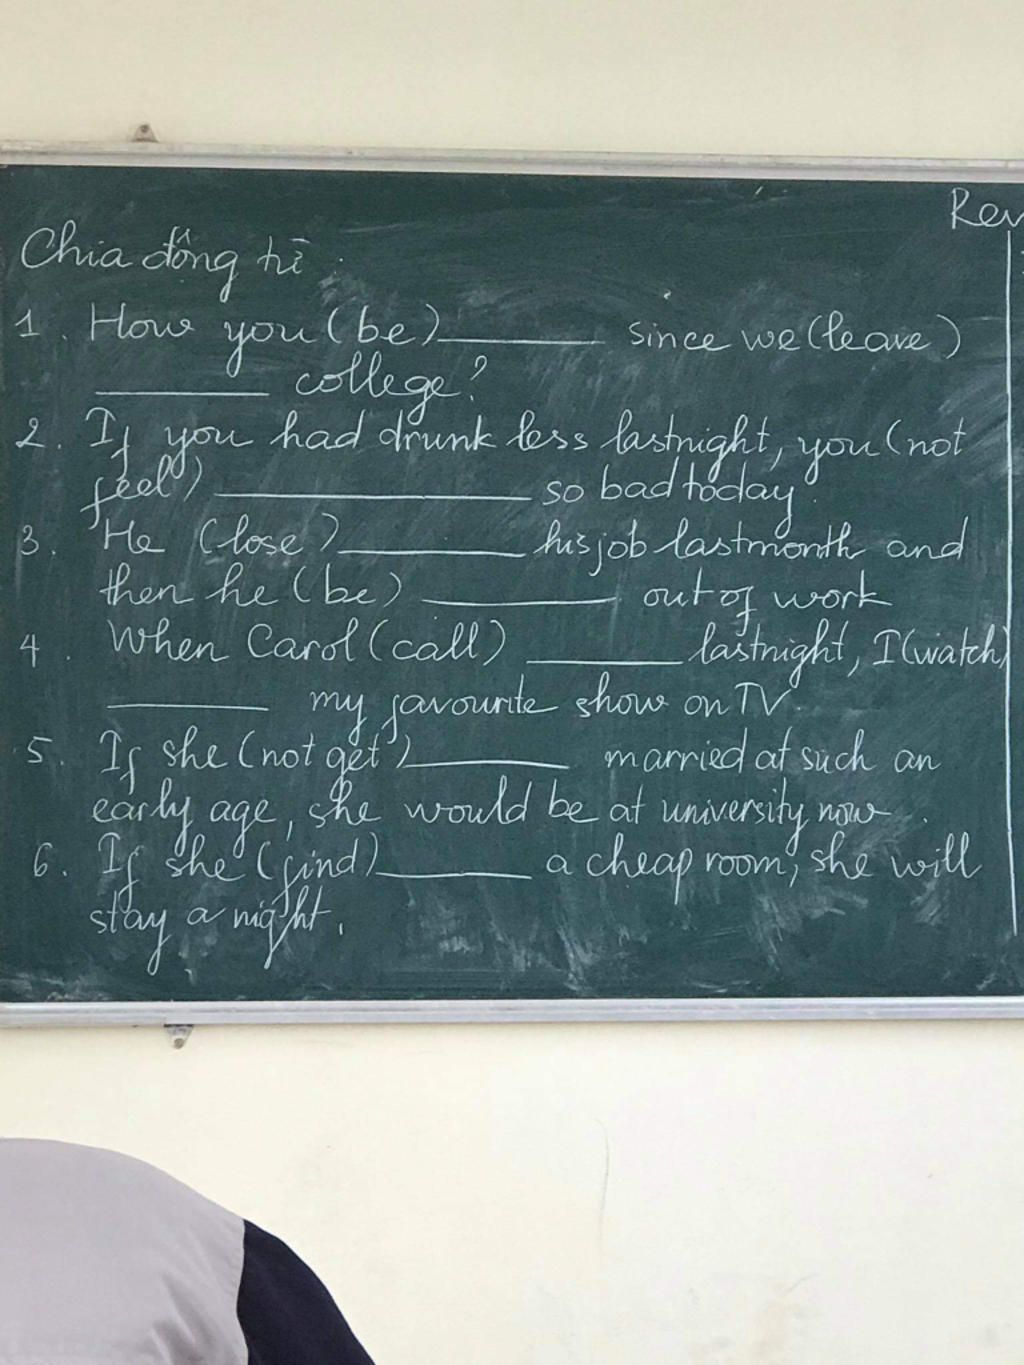 Rev
Chia động từ
1. How you (be) ________ since we (leave)
________ college?
2. If you had drunk less lastnight, you (not
feel) ________ so bad today.
3. He (lose) ________ his job lastmonth and
then he (be) ________ out of work
4. When Carol (call) ________ lastnight, I (watch)
________ my favourite show on TV.
5. If she (not get) ________ married at such an
early age, she would be at university now.
6. If she (find) ________ a cheap room, she will
stay a night.